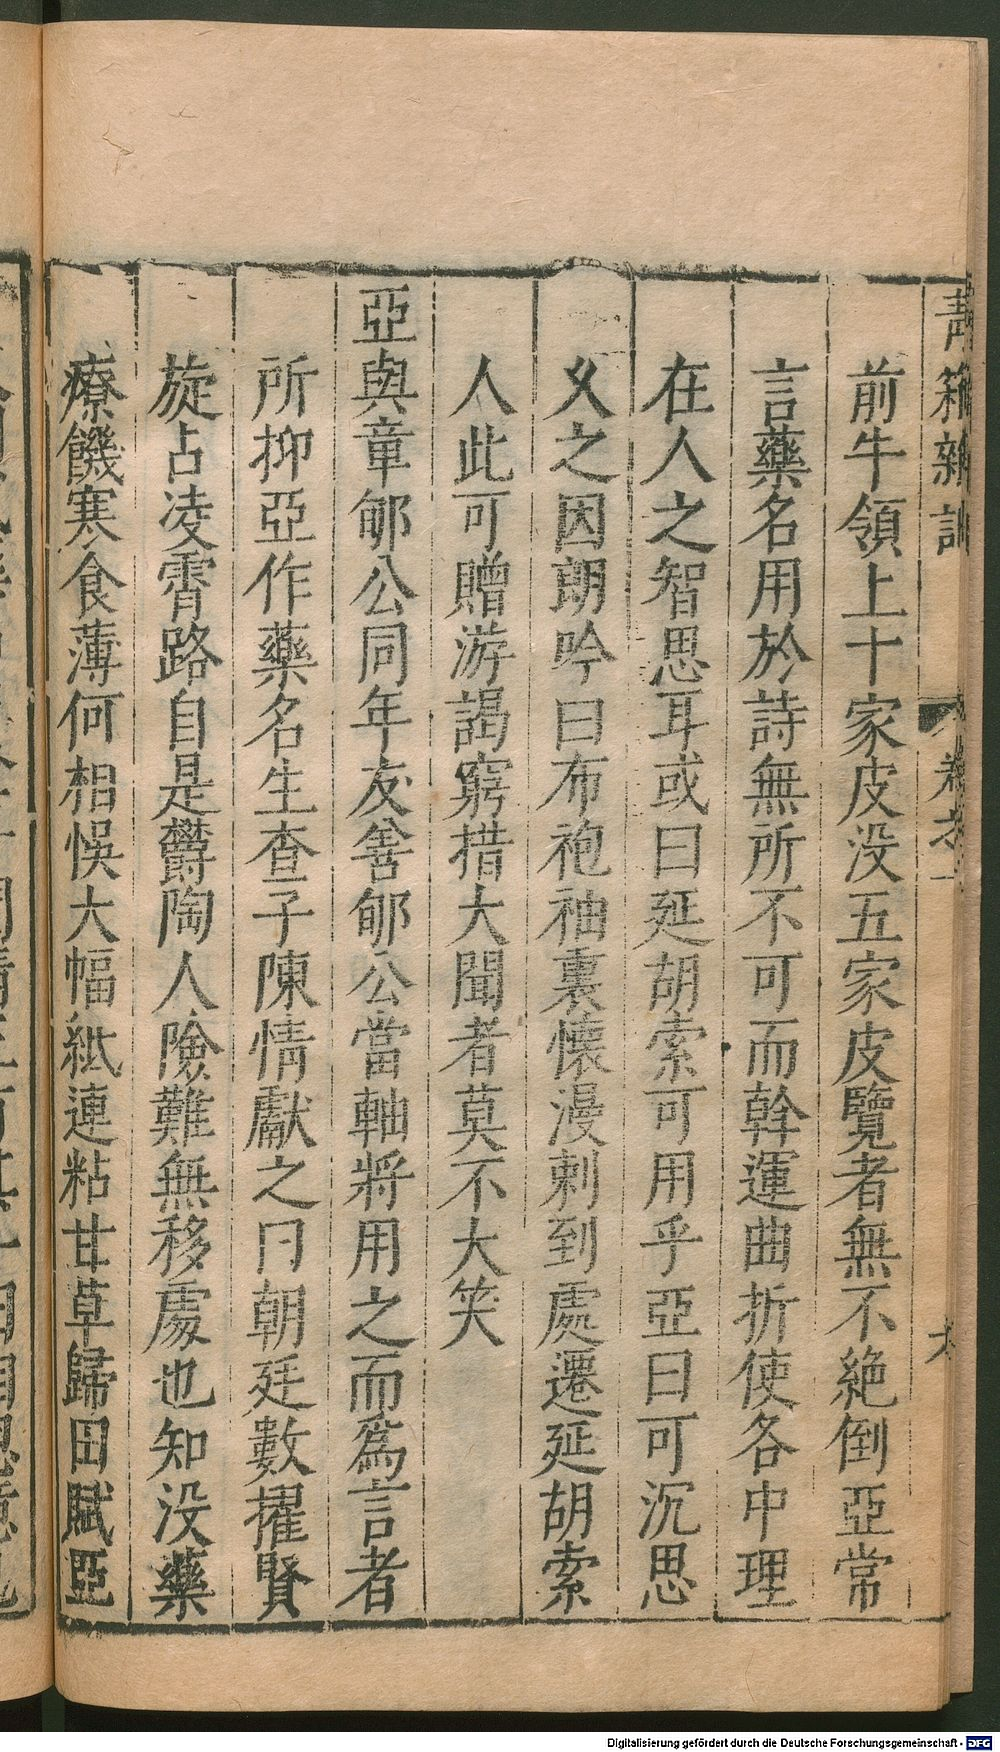 青箱雜記
卷之一
前牛領上十家皮没五家皮覽者無不絶倒亞常
言藥名用於詩無所不可而斡運曲折使各中理
在人之智思耳或曰延胡索可用乎亞曰可沉思
乆之因朗吟曰布袍袖裏懐漫刺到處遷延胡索
人此可贈游謁窮措大聞者莫不大笑
亞與章郇公同年友善郇公當軸將用之而爲言者
所抑亞作藥名生查子陳情獻之曰朝廷數擢賢
旋占凌霄路自是欝陶人險難無移處也知没藥
療饑寒食薄何相悞大幅紙連粘甘草歸田賦亞
Digitalisierung gefördert durch die Deutsche Forschungsgemeinschaft - DFG